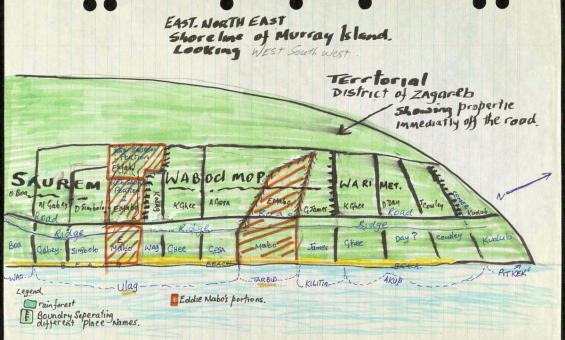 EAST. NORTH EAST
Shoreline of Murray Island.
Looking West South West
Terrtorial
District of Zagareb
Showing propertie
immediatly off the road.
SAUREM
WABOD MOP
WARI MET.
D Boa
M Gabey
D Simbolo
E Mabo
K Wag
K Ghee
A Gesa
E Mabo
G James
K Ghee
D Day
Cowley
Kudub
Road
Road
Ridge
Ridge
Ridge
Boa
Gabey
Simbolo
Mabo
Wag
Ghee
Gesa
Mabo
James
Ghee
Day?
Cowley
Kudub
BEACH
WAO
Ulag
TARBID
KILITIA
AKUP
PITKEK
Legend.
rainforest
Boundry Seperating
different place-Names.
Eddie Mabo's portions.